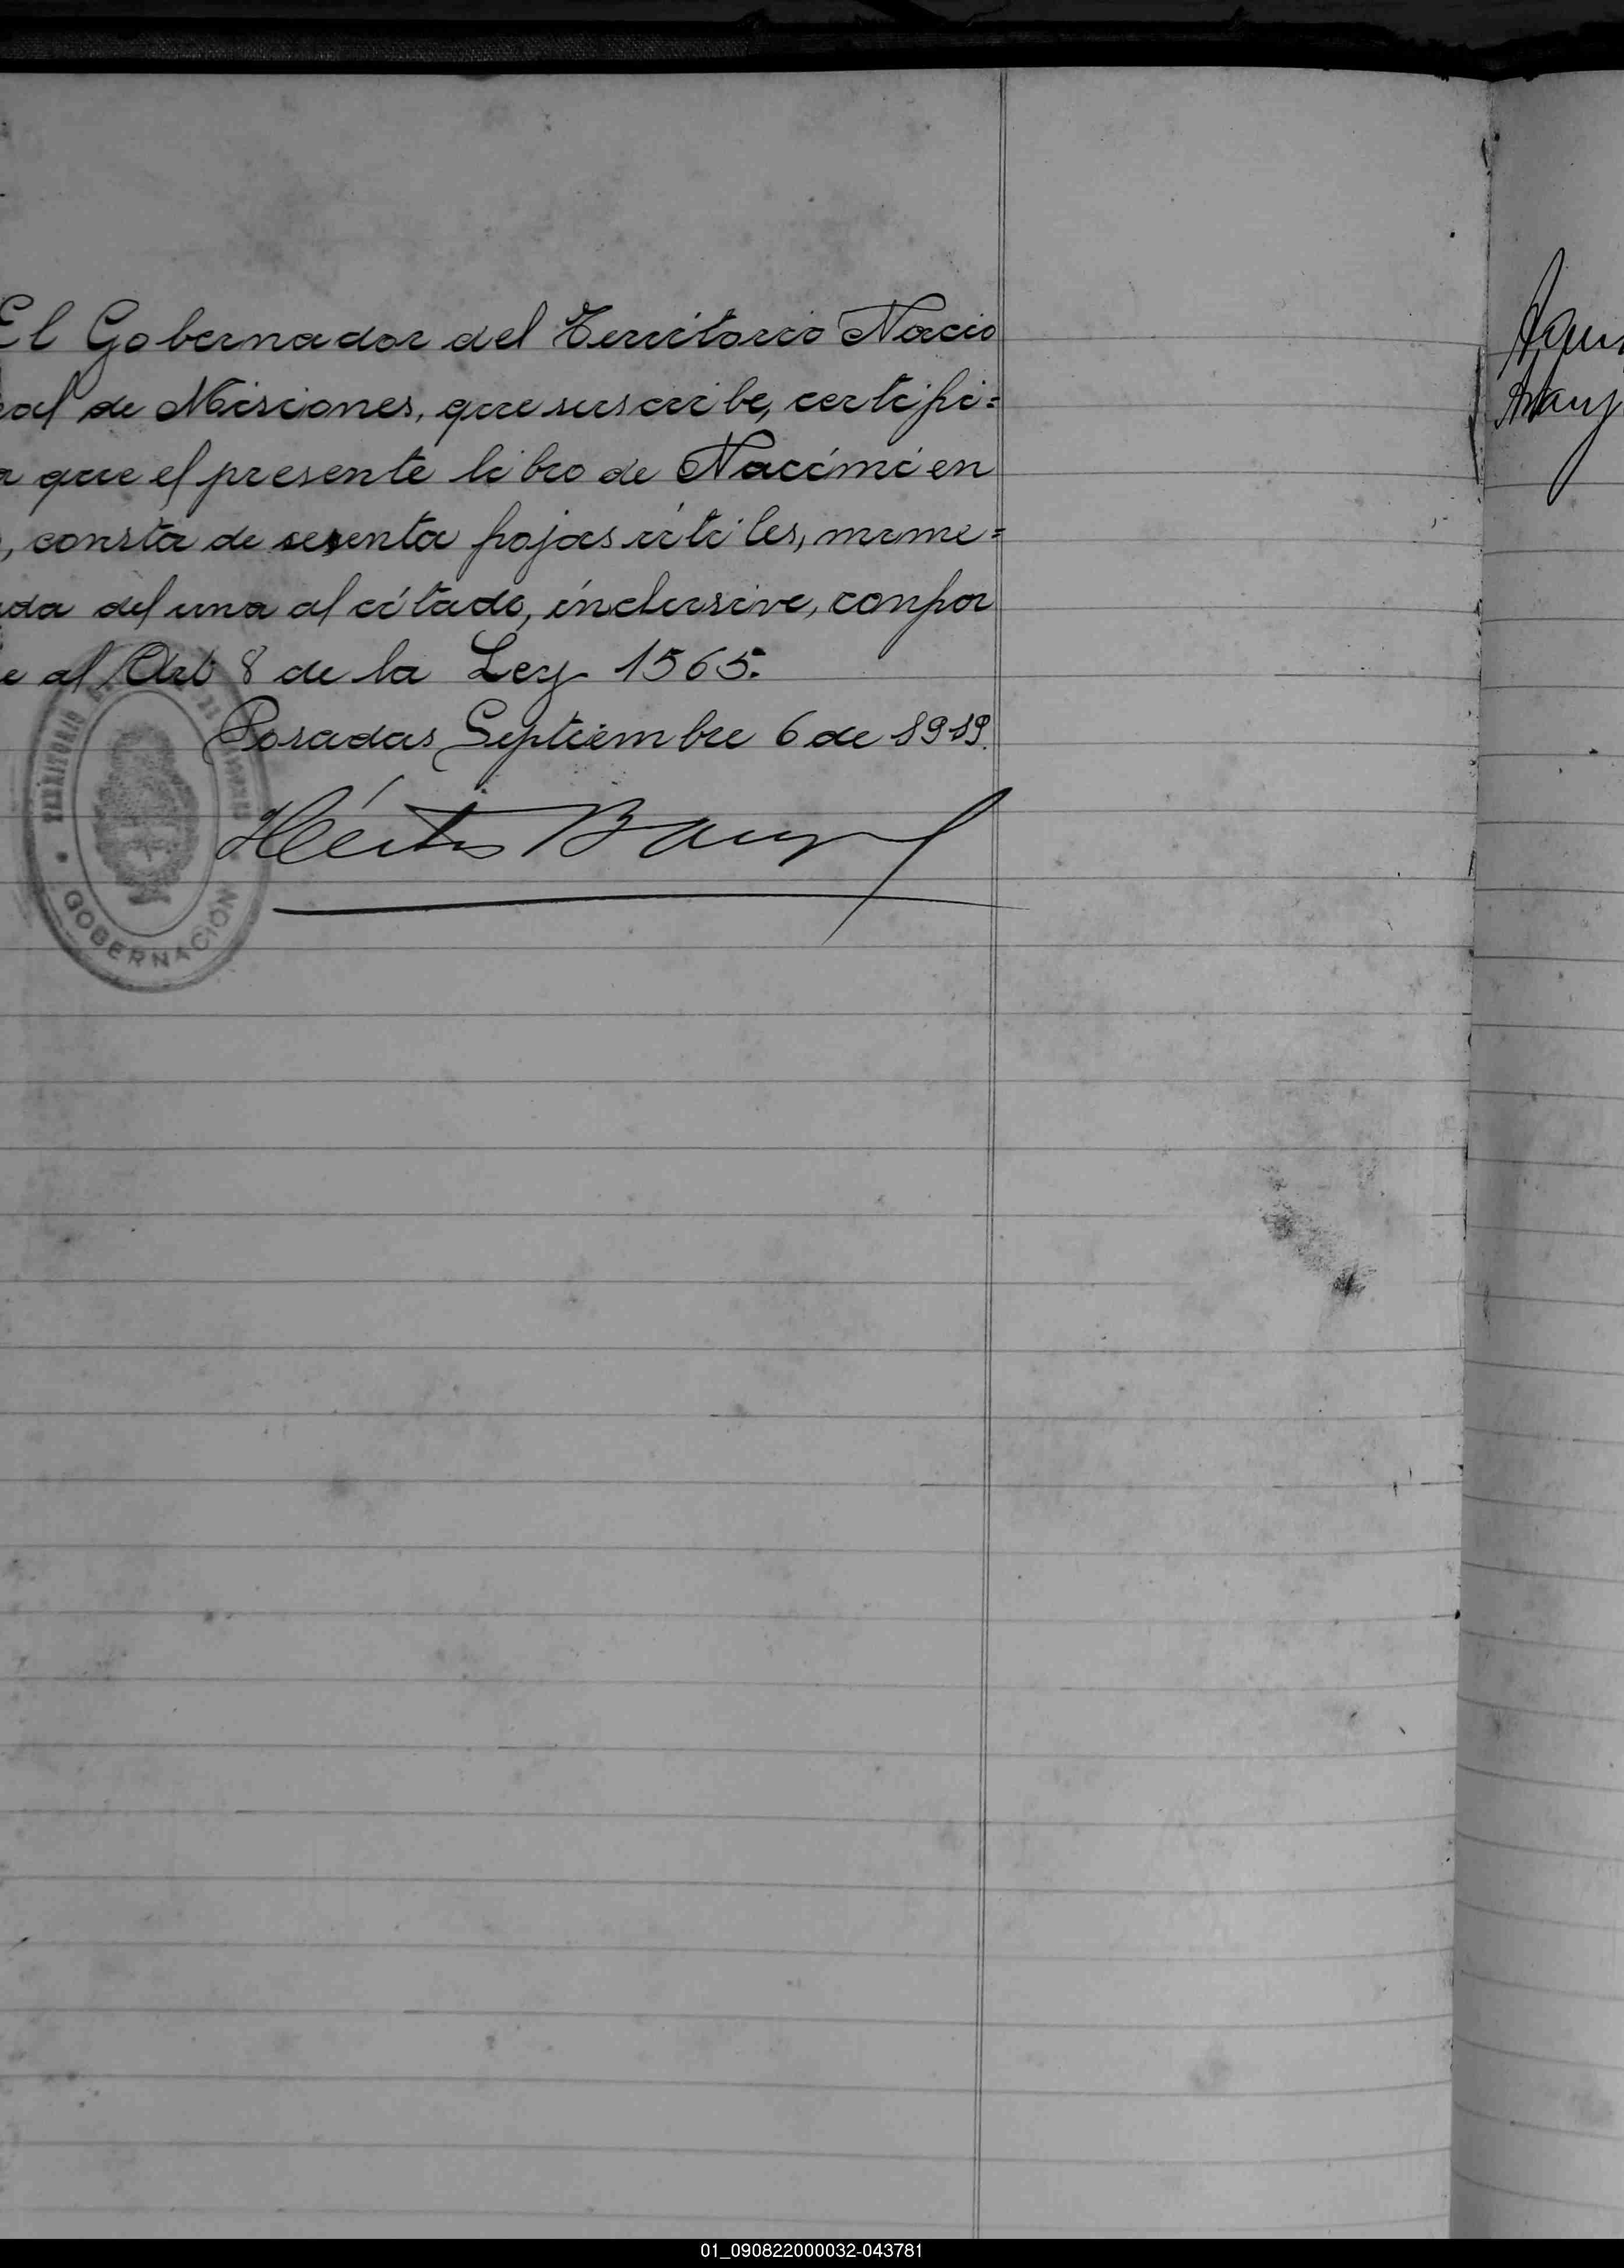 El Gobernador del Territorio Nacio
nal de Misiones, que suscribe, certifi=
a que el presente libro de Nacimien
, consta de sesenta fojas útiles, nume=
ada del una al citado, inclusive, confor
e al Art 8 de la Ley 1565.
Posadas Septiembre 6 de 1919.
TERRITORIO
GOBERNACIÓN
01_090822000032-043781